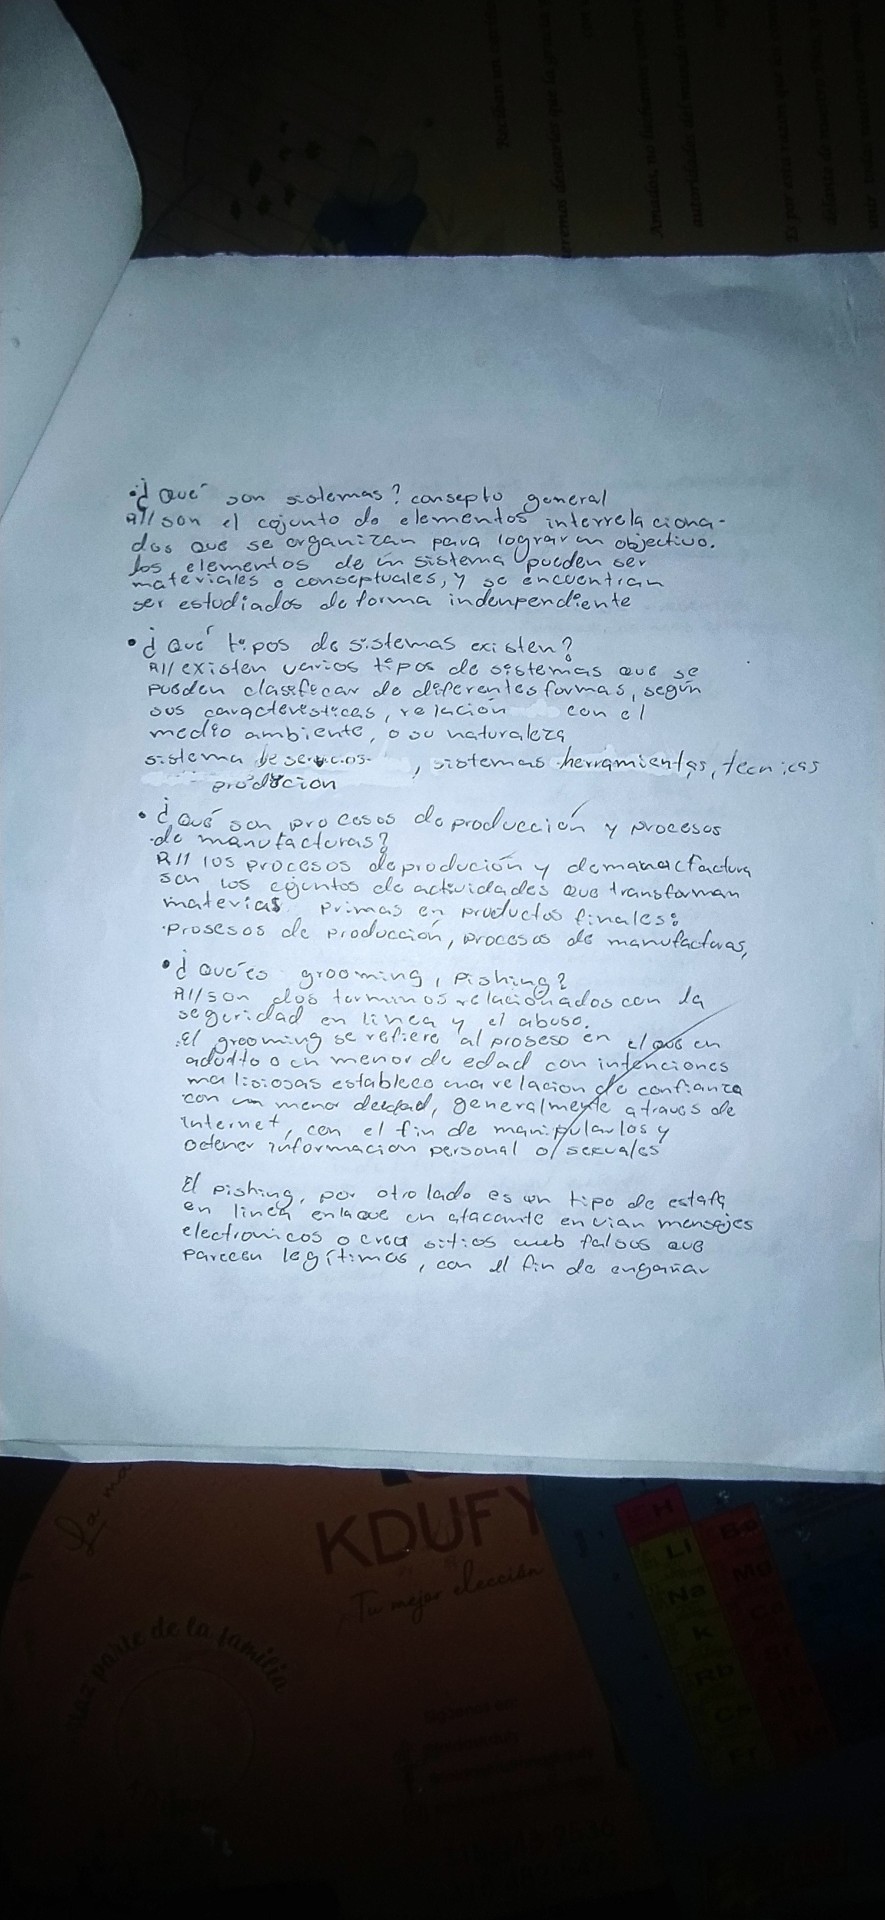 • ¿Qué son sistemas? consepto general
R// son el cojunto de elementos interrelaciona-
dos que se organizan para lograr un objectivo.
los elementos de un sistema pueden ser
materiales o conseptuales, y se encuentran
ser estudiados de forma indenpendiente
• ¿Qué tipos de sistemas existen?
R// existen varios tipos de sistemas que se
pueden clasifecar de diferentes formas, según
sus caracteristicas, relación con el
medio ambiente, o su naturaleza
sistema de servicios, sistemas herramientas, tecnicas
produción
• ¿Qué son procesos de producción y procesos
de manufacturas?
R// los procesos de produción y de manufactura
son los cojuntos de actividades que transforman
materias primas en productos finales:
prosesos de producción, procesos de manufacturas,
• ¿Qué es grooming, pishing?
R// son dos terminos relacionados con la
seguridad en linea y el abuso.
El grooming se refiere al proseso en el que un
adulto o un menor de edad con intenciones
malisiosas establece una relacion de confianza
con un menor de edad, generalmente a traves de
internet, con el fin de manipularlos y
obtener informacion personal o/sexuales
El pishing, por otro lado es un tipo de estafa
en linea en la que un atacante envian mensajes
electronicos o crea sitios web falsos que
parecen legítimos, con el fin de engañar
KDUFY
Tu mejor elección
Haz parte de la familia
La ma
H
Li
Be
Na
Mg
K
Ca
Rb
Sr